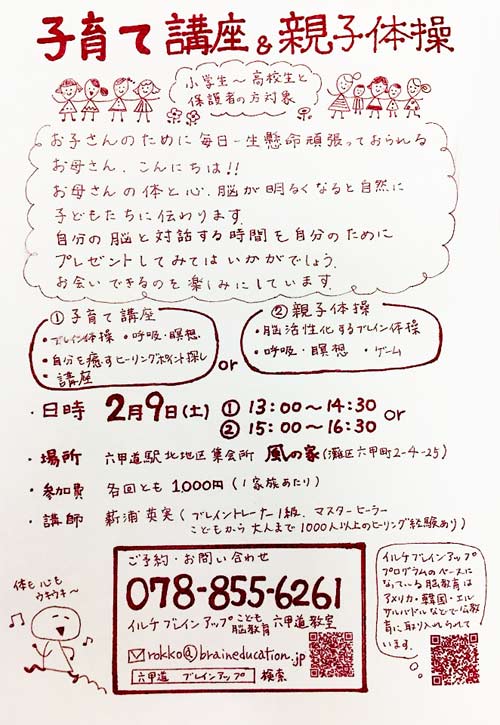 子育て講座&親子体操
小学生〜高校生と
保護者の方対象
お子さんのために毎日一生懸命頑張っておられる
お母さん、こんにちは!!
お母さんの体と心、脳が明るくなると自然に
子どもたちに伝わります。
自分の脳と対話する時間も自分のために
プレゼントしてみてはいかがでしょう。
お会いできるのを楽しみにしています。
① 子育て講座
・ブレイン体操 ・呼吸・瞑想
・自分を癒すヒーリングポイント探し
・講座
or
② 親子体操
・脳活性化するブレイン体操
・呼吸・瞑想 ・ゲーム
・日時 2月9日(土) ① 13:00〜14:30 or
② 15:00〜16:30
・場所 六甲道駅北地区集会所 風の家(灘区六甲町2-4-25)
・参加費 各回とも 1,000円(1家族あたり)
・講師 萩浦英実(ブレイントレーナー1級、マスターヒーラー
こどもから大人まで1000人以上のヒーリング経験あり)
ご予約・お問い合わせ
078-855-6261
イルチブレインアップ こども脳教育 六甲道教室
rokko@braineducation.jp
六甲道 ブレインアップ 検索
体も心も
ウキウキ〜
イルチブレインアップ
プログラムのベースに
なっている脳教育は
アメリカ・韓国・エル
サルバドルなどで公教
育に取り入れられて
います。